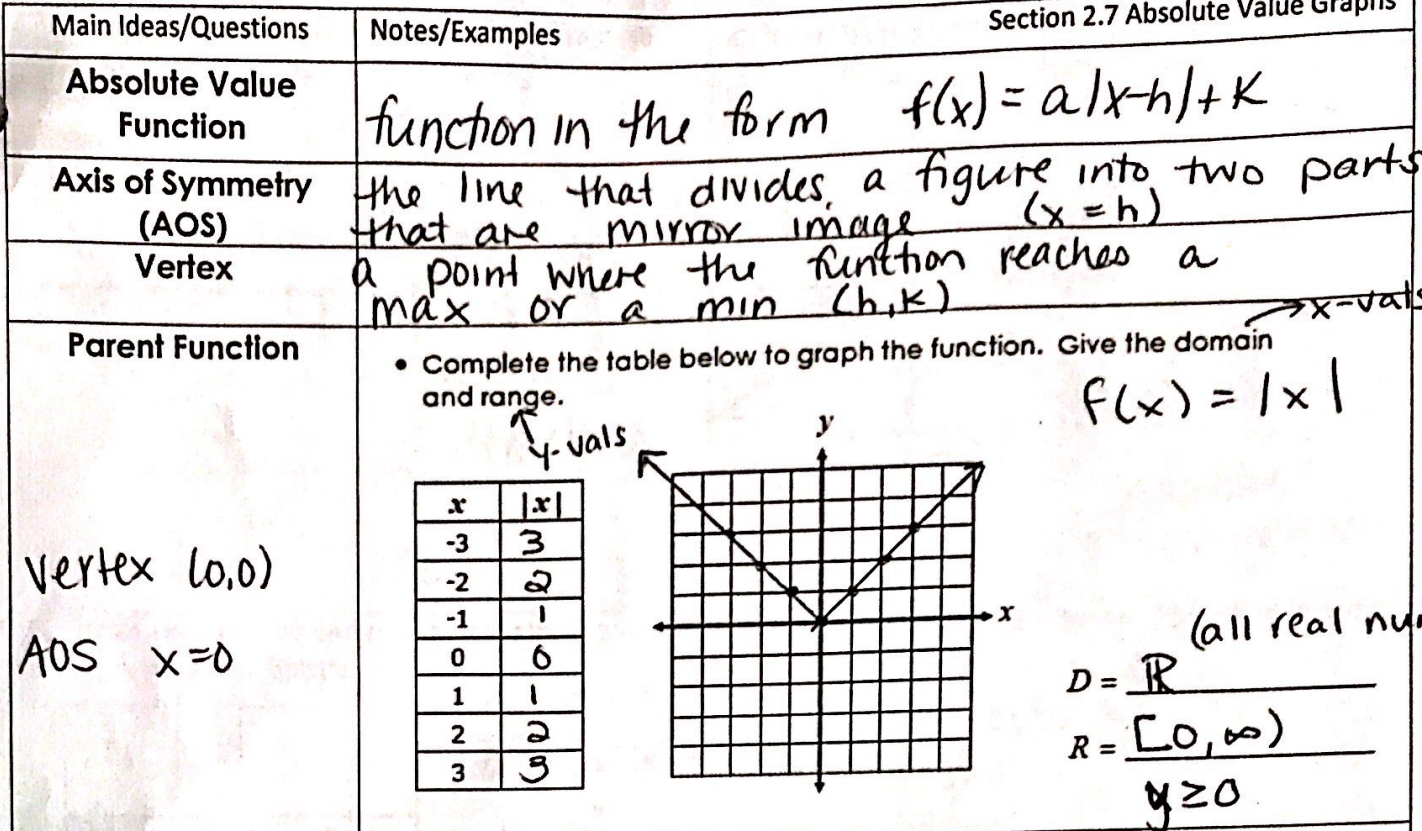 Section 2.7 Absolute Value Graphs
Main Ideas/Questions
Notes/Examples
Absolute Value
Function
function in the form f(x) = a|x-h|+K
Axis of Symmetry
(AOS)
the line that divides a figure into two parts
that are mirror image (x = h)
Vertex
a point where the function reaches a
max or a min (h,K)
Parent Function
x-vals
• Complete the table below to graph the function. Give the domain
and range.
f(x) = |x|
y-vals
y
x |x|
-3 3
-2 2
-1 1
0 0
1 1
2 2
3 3
x
vertex (0,0)
AOS x=0
(all real nu
D = ℝ
R = [0, ∞)
y ≥ 0